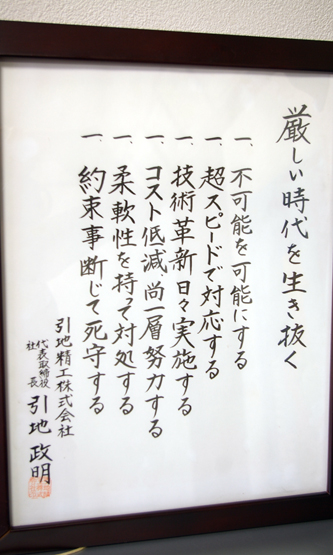 厳しい時代を生き抜く
一、不可能を可能にする
一、超スピードで対応する
一、技術革新日々実施する
一、コスト低減尚一層努力する
一、柔軟性を持って対処する
一、約束事断じて死守する
引地精工株式会社
代表取締役
社長
引地政明